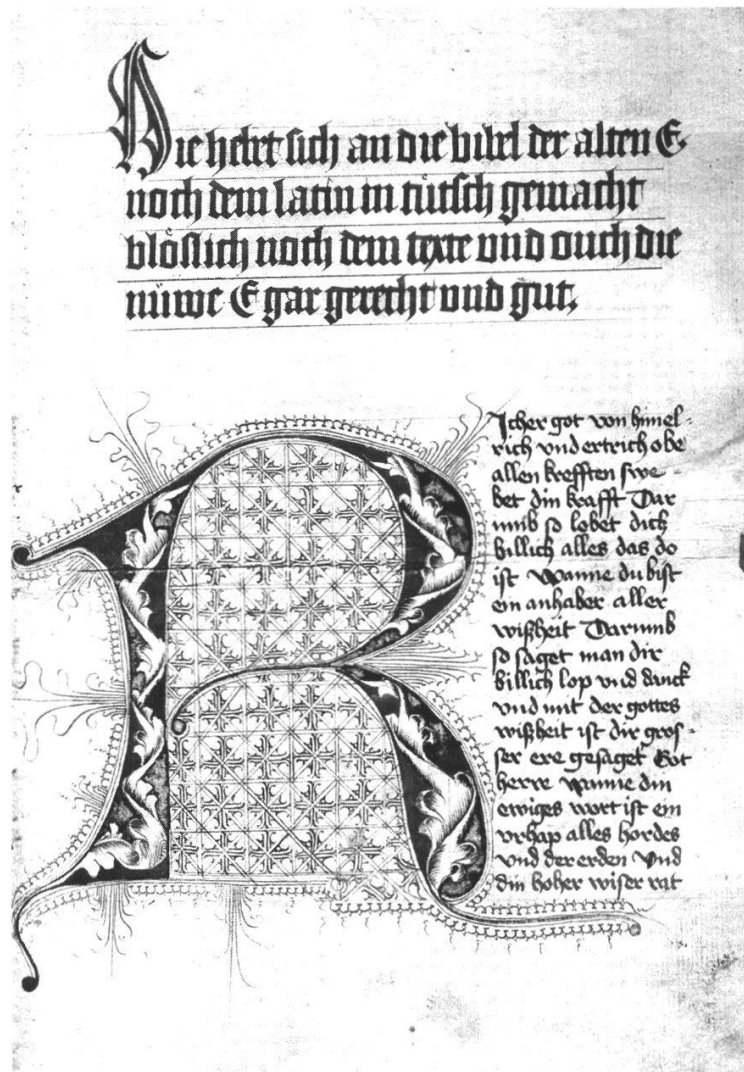 Hie hebt sich an die bibel der alten E
noch dem latin in tütsch gemacht
blöslich noch dem texte vnd ouch die
nüwe E gar gerecht vnd gut.
R
Icher got von himel-
rich vnd ertrich obe
allen krefften swe-
bet din krafft Dar
vmb so lobet dich
billich alles das do
ist Wanne du bist
ein anhaber aller
wißheit Darumb
so saget man dir
billich lop vnd danck
vnd mit der gottes
wißheit ist dir gros-
ser ere gesaget Got
herre Wanne din
ewiges wort ist ein
vrhap alles hordes
vnd der erden Vnd
din hoher wiser rat